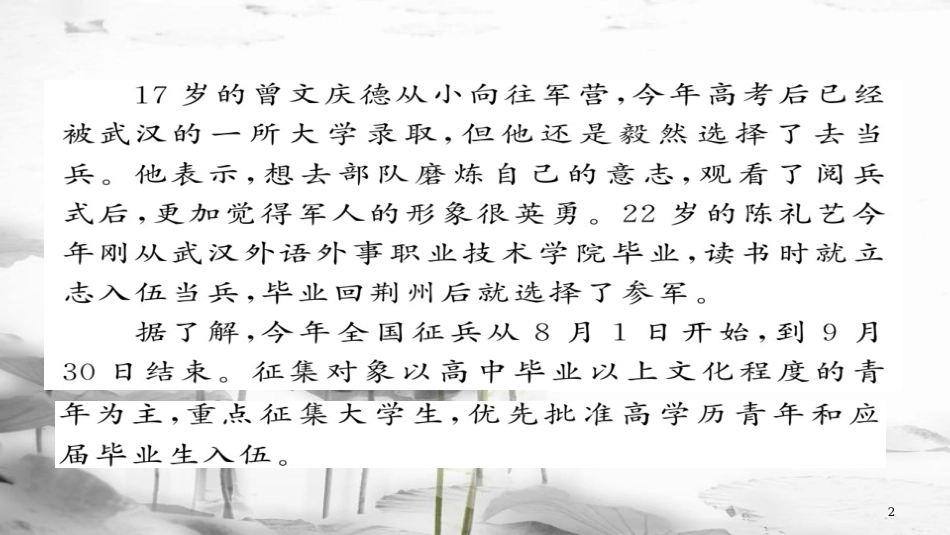 17 岁的曾文庆德从小向往军营,今年高考后已经
被武汉的一所大学录取,但他还是毅然选择了去当
兵。他表示,想去部队磨炼自己的意志,观看了阅兵
式后,更加觉得军人的形象很英勇。22 岁的陈礼艺今
年刚从武汉外语外事职业技术学院毕业,读书时就立
志入伍当兵,毕业回荆州后就选择了参军。
据了解,今年全国征兵从 8 月 1 日开始,到 9 月
30 日结束。征集对象以高中毕业以上文化程度的青
年为主,重点征集大学生,优先批准高学历青年和应
届毕业生入伍。
2